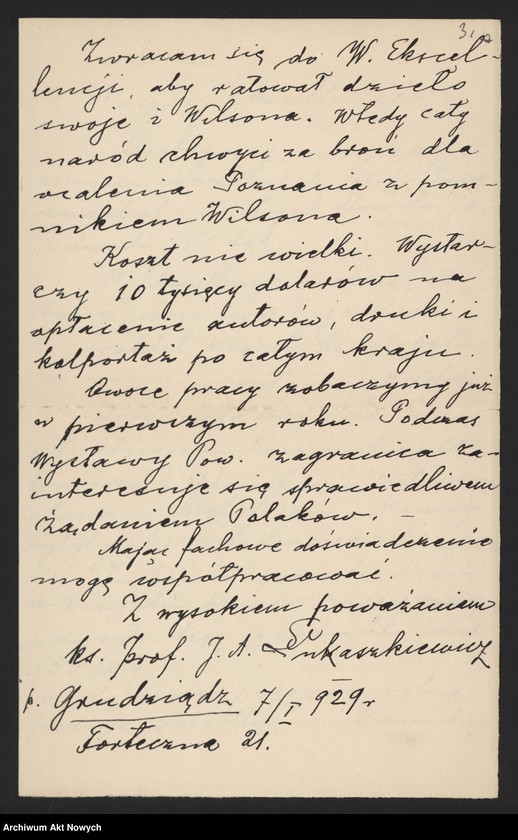 Zwracam się do W. Ekscel-
lencji, aby ratował dzieło
swoje i Wilsona. Wtedy cały
naród chwyci za broń dla
ocalenia Poznania z pom-
nikiem Wilsona.
Koszt nie wielki. Wystar-
czy 10 tysięcy dolarów na
opłacenie autorów, druki i
kolportaż po całym kraju.
Owoce pracy zobaczymy już
w pierwszym roku. Podczas
Wystawy Pow. zagranica za-
interesuje się sprawiedliwem
żądaniem Polaków. –
Mając fachowe doświadczenie
mogę współpracować.
Z wysokiem poważaniem
ks. prof. J. A. Łukaszkiewicz
p. Grudziądz 7/I 929 r
Forteczna 21.
Archiwum Akt Nowych